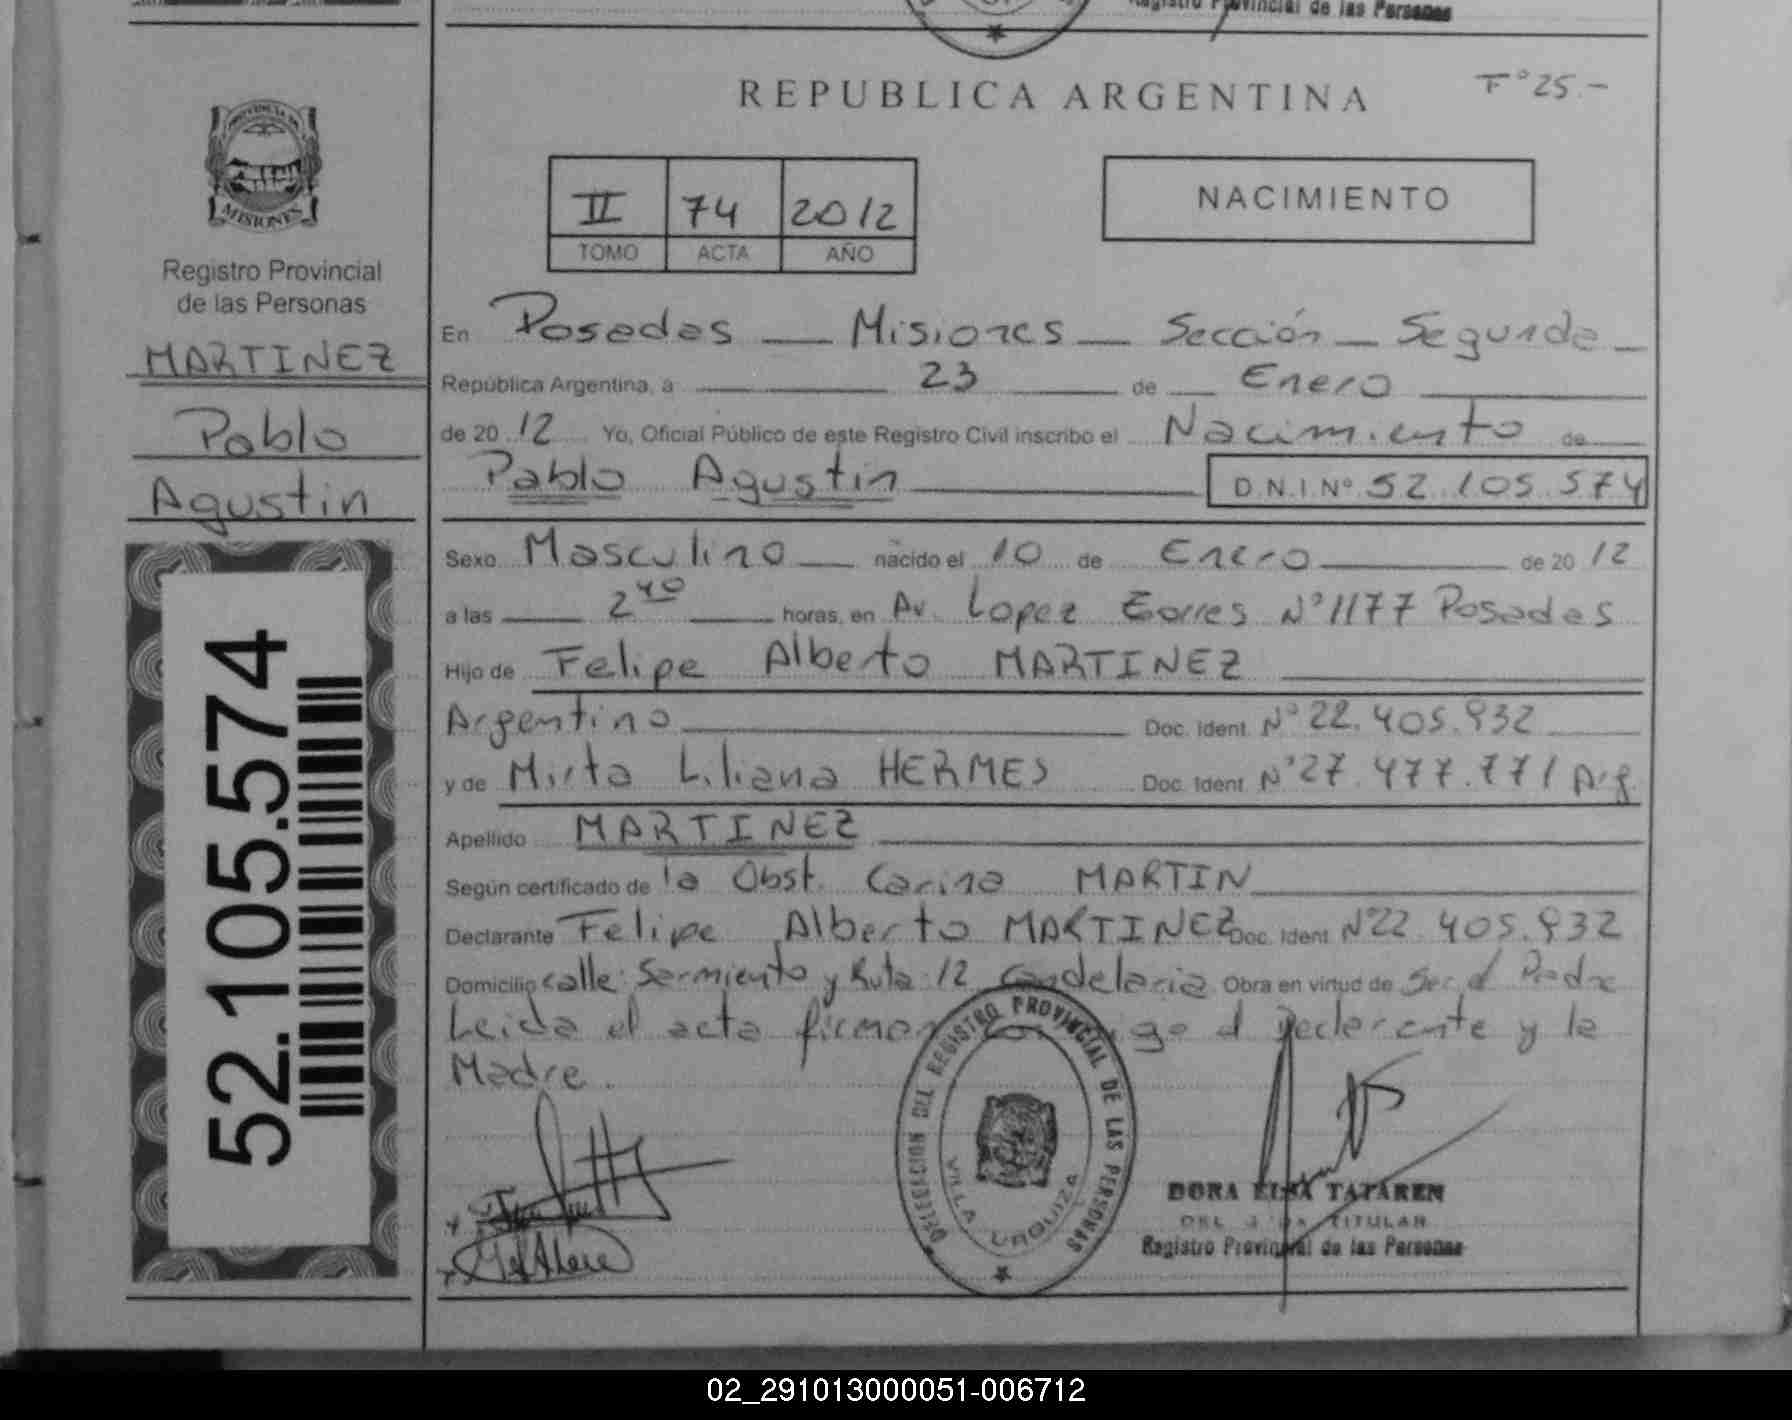 Registro Provincial de las Personas
REPUBLICA ARGENTINA
F° 25.-
PROVINCIA DE
MISIONES
Registro Provincial
de las Personas
MARTINEZ
Pablo
Agustin
52.105.574
II 74 2012
TOMO ACTA AÑO
NACIMIENTO
En Posadas — Misiones — Sección — Segunda —
República Argentina, a 23 de Enero
de 2012 Yo, Oficial Público de este Registro Civil inscribo el Nacimiento de
Pablo Agustin D.N.I. N° 52.105.574
Sexo Masculino nacido el 10 de Enero de 2012
a las 2 40 horas, en Av. Lopez Torres N° 1177 Posadas
Hijo de Felipe Alberto MARTINEZ
Argentino Doc. Ident. N° 22.405.932
y de Mirta Liliana HERMES Doc. Ident. N° 27.477.771 Arg.
Apellido MARTINEZ
Según certificado de la Obst. Carina MARTIN
Declarante Felipe Alberto MARTINEZ Doc. Ident. N° 22.405.932
Domicilio calle: Sarmiento y Ruta 12 Candelaria Obra en virtud de ser el Padre
Leida el acta firman conmigo el Declarante y la
Madre.
DELEGACION DEL REGISTRO PROVINCIAL DE LAS PERSONAS
VILLA URQUIZA
DORA ELSA TATAREN
TITULAR
Registro Provincial de las Personas
02_291013000051-006712